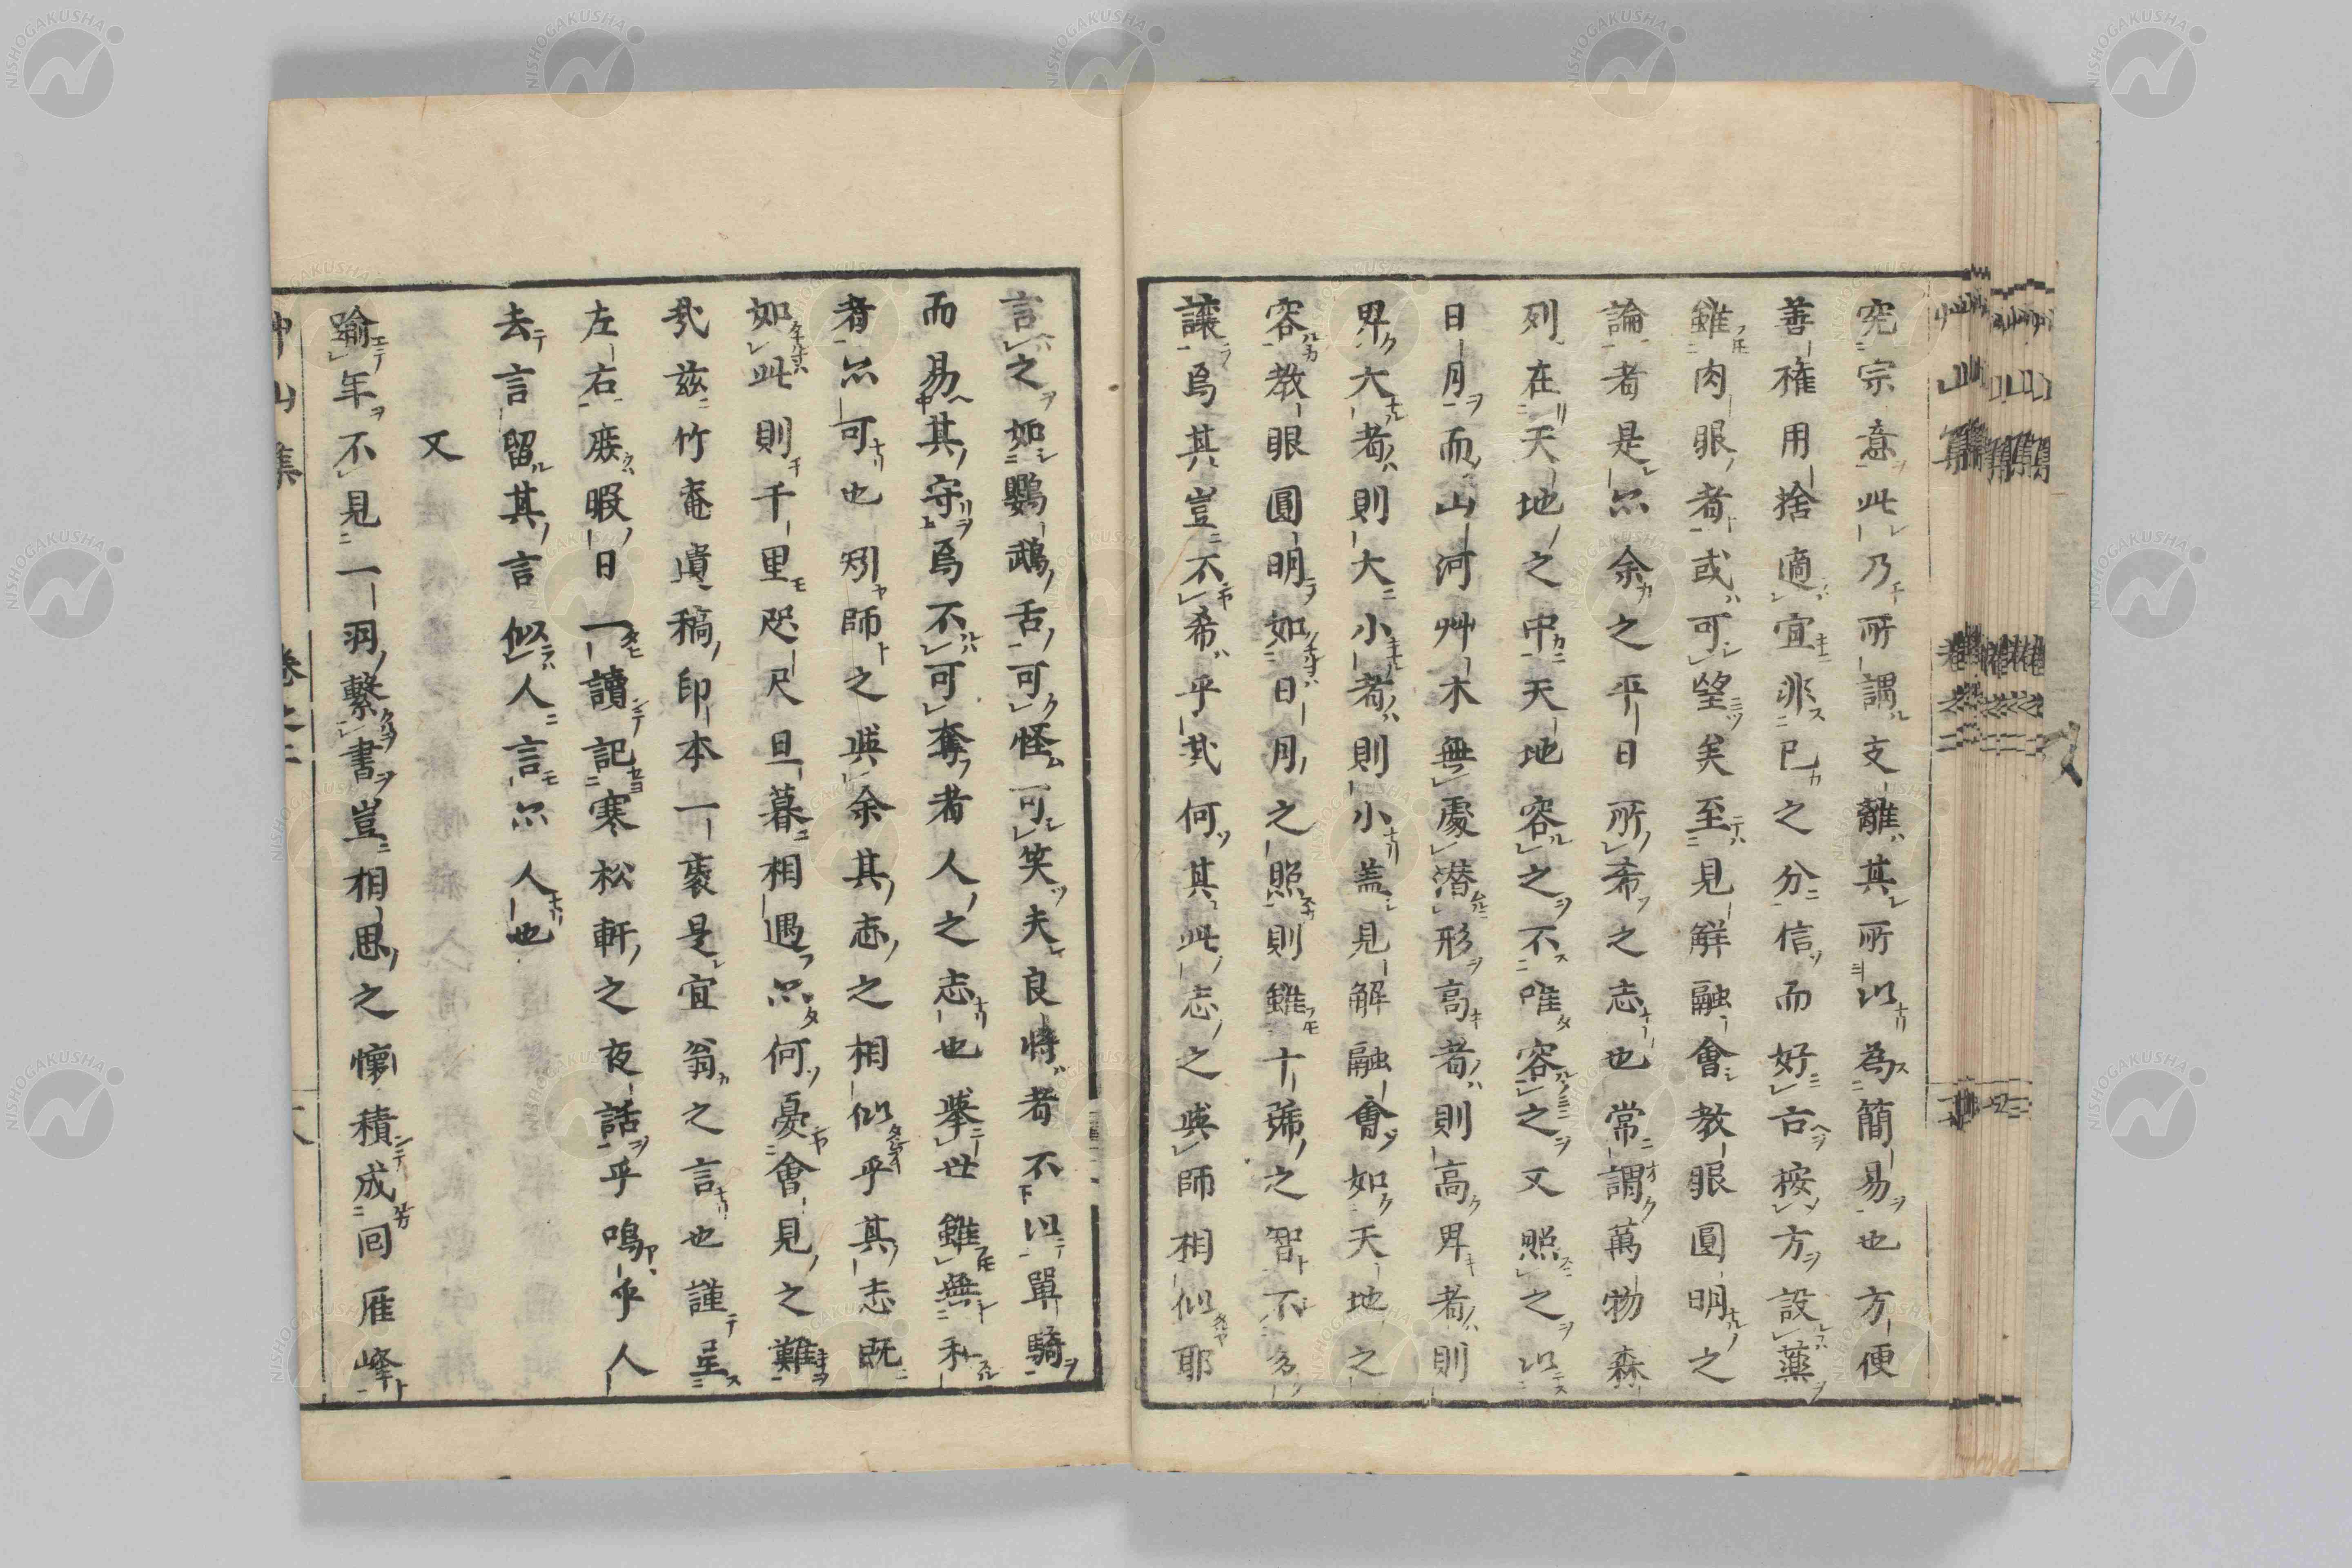 究宗意此乃所謂支離其所以為簡易也方便
善權用捨適宜非已之分信而好古按方設藥
雖肉眼者或可望矣至見解融會教眼圓明之
論者是尒余之平日所希之志也常謂萬物森
列在天地之中天地容之不唯容之又照之以
日月而山河艸木無處潜形高者則高畀者則
畀大者則大小者則小盖見解融會如天地之
容教眼圓明如日月之照則雖十號之智不多
讓焉其豈不希乎哉何其此志之與師相似耶
言之如鸚鵡舌可怪可笑夫良將者不以單騎
而易其守焉不可奪者人之志也擧世雖無和
者尒可也矧師之與余其志之相似乎其志既
如此則千里咫尺旦暮相遇尒何憂會見之難
哉茲竹菴遺稿印本一袠是宜翁之言也謹呈
左右慶暇日一讀記寒松軒之夜話乎嗚乎人
去言留其言似人言尒人也
又
踰年不見一羽繫書豈相思之懷積成囘雁峰
山集
卷之二
NISHOGAKUSHA